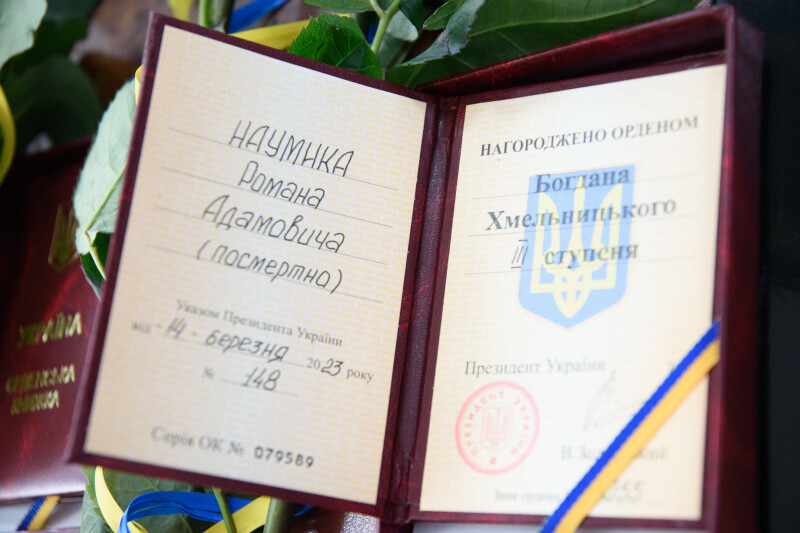 НАУМИКА
Романа
Адамовича
(посмертно)
Указом Президента України
від "14" березня 2023 року
№ 148
Серія ОК № 079589
НАГОРОДЖЕНО ОРДЕНОМ
Богдана
Хмельницького
III ступеня
Президент України
ПРЕЗИДЕНТ УКРАЇНИ
Знак ордена
УКРАЇНА
ОРДЕНСЬКА
КНИЖКА